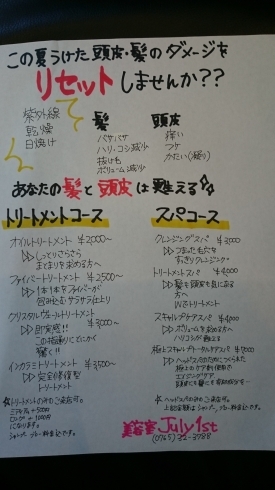 この夏うけた頭皮・髪のダメージを
リセットしませんか??
紫外線
乾燥
日焼け
髪
パサパサ
ハリ・コシ減少
抜け毛
ボリューム減少
頭皮
痒い
フケ
かたい(凝り)
あなたの髪と頭皮は甦える
トリートメントコース
オイルトリートメント ¥2000〜
しっとりさらさら
まとまりを求める方へ
ファイバートリートメント ¥2500〜
1本1本をファイバーが
包み込むサラサラ仕上り
クリスタルヴェールトリートメント
¥3000〜
即実感!!
この指通りにとにかく
驚く!!
インカラミトリートメント ¥3500〜
完全修復型
トリートメント
☆トリートメントのみのご来店可。
ミディアム+500円
ロング+1000円
になります。
スパコース
クレンジングスパ ¥3000
つまった毛穴を
すっきりクレンジング
トリートメントスパ ¥4000
髪も頭皮も気になる
方へ
Wのトリートメント
スキャルプケアスパ ¥4000
ボリュームを求める方へ
ハリコシが甦える
極上スキャルプトータルケアスパ ¥5000
ヘッドスパのためにつくられた
極上のケア剤使用で
エイジングケア
☆ヘッドスパのみのご来店可。
美容室 July 1st
(0765) 32-3788